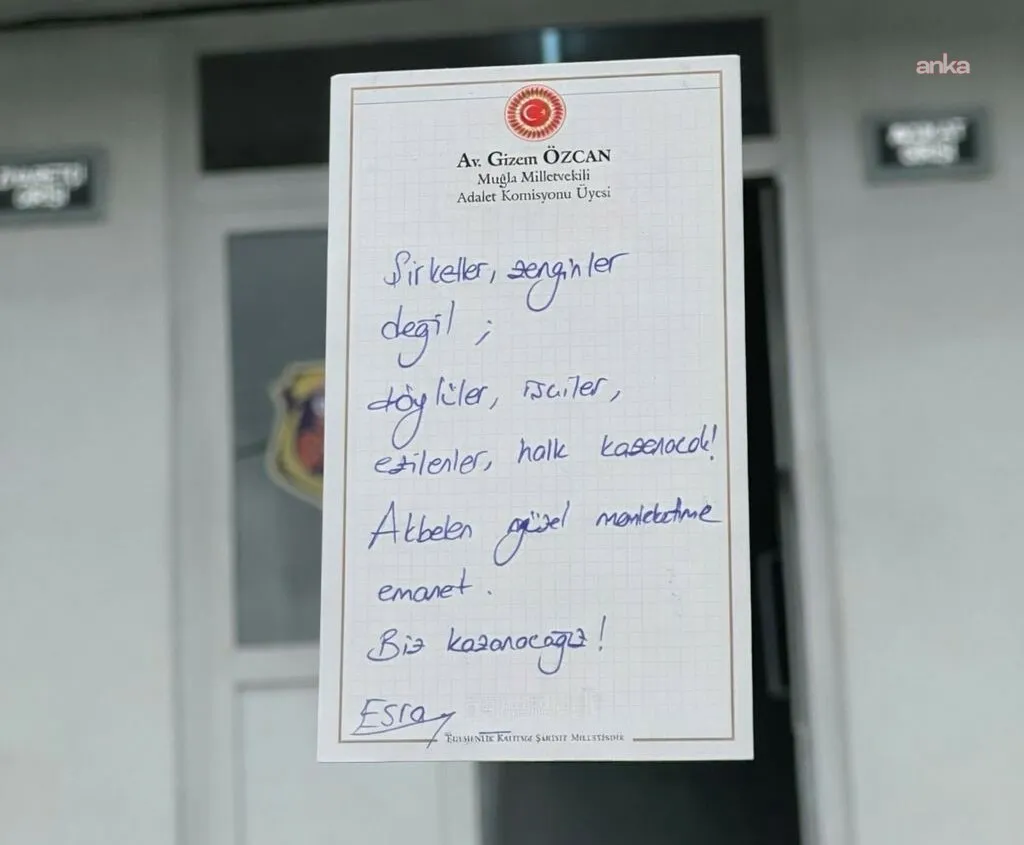 anka
Av. Gizem ÖZCAN
Muğla Milletvekili
Adalet Komisyonu Üyesi
Şirketler, zenginler
değil ;
köylüler, işçiler,
ezilenler, halk kazanacak!
Akbelen güzel memleketime
emanet.
Biz kazanacağız!
Esra